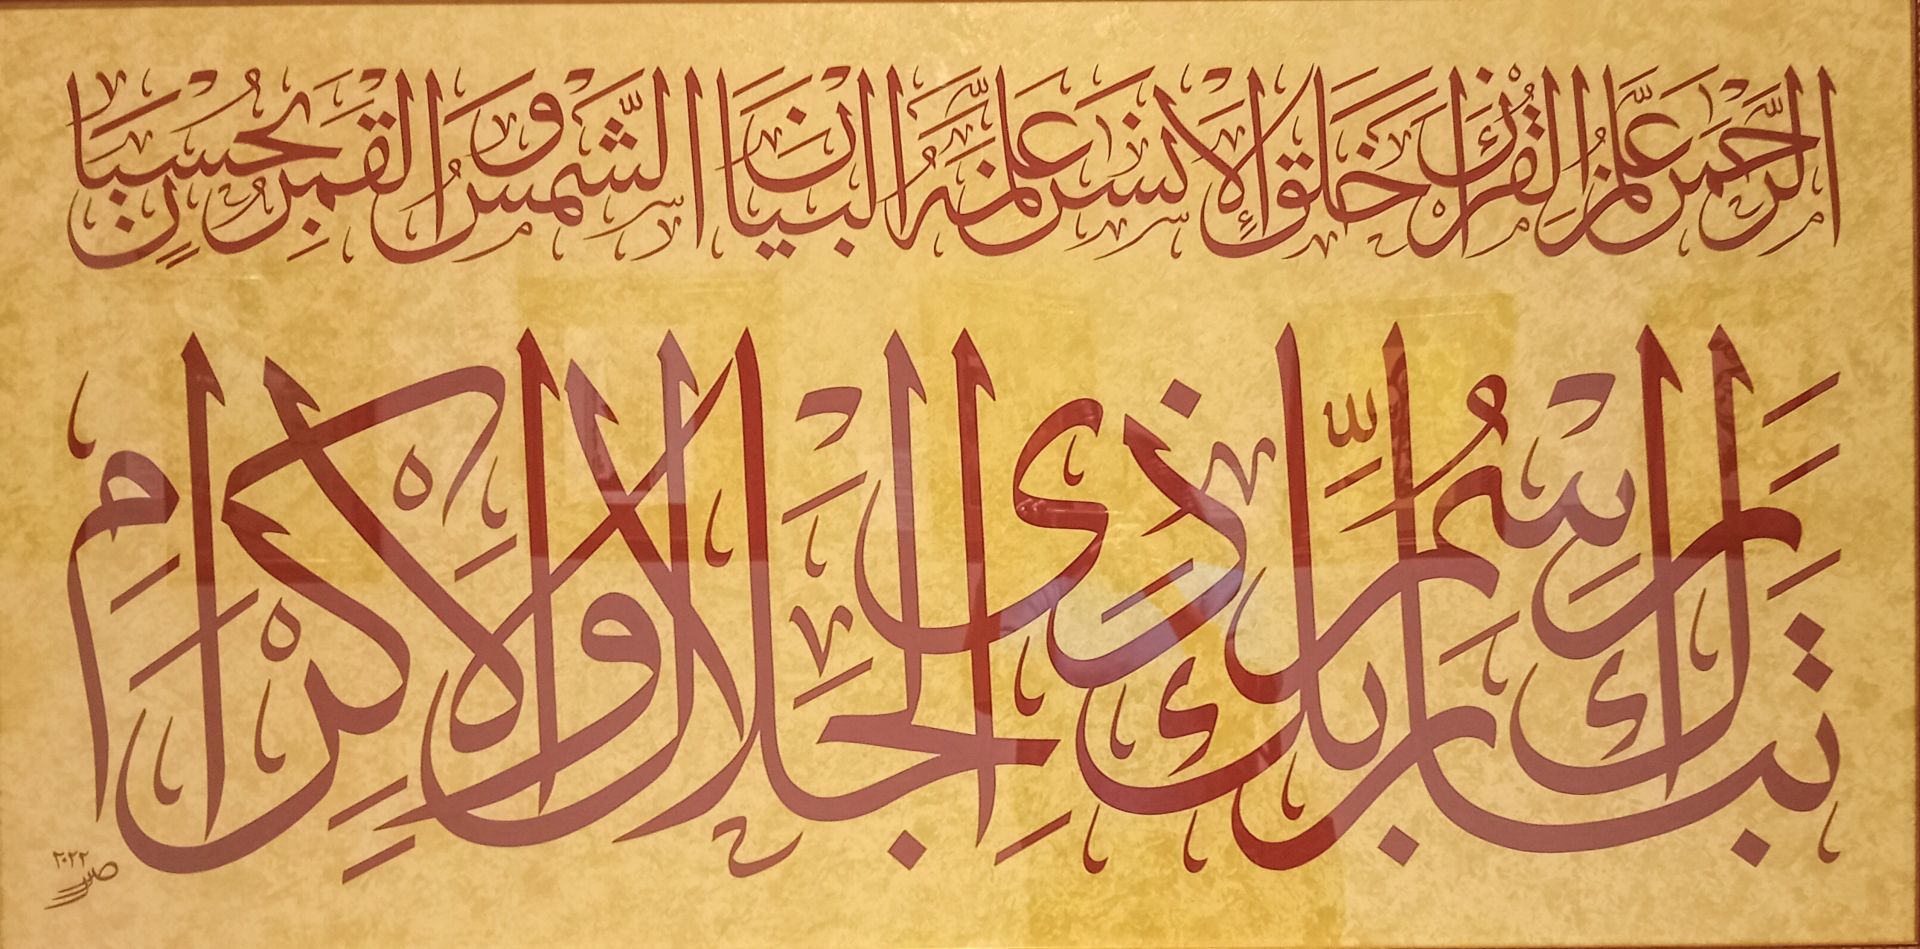 الرَّحْمَٰنُ عَلَّمَ الْقُرْآنَ خَلَقَ الْإِنْسَٰنَ عَلَّمَهُ الْبَيَانَ الشَّمْسُ وَالْقَمَرُ بِحُسْبَانٍ
تَبَارَكَ اسْمُ رَبِّكَ ذِي الْجَلَالِ وَالْإِكْرَامِ
٢٠٢٢